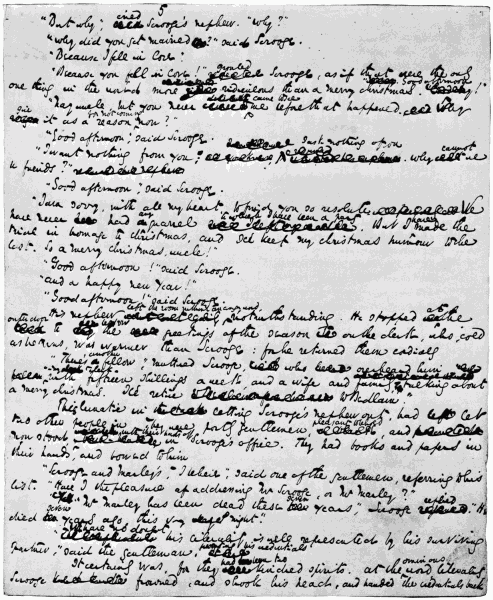 5
"But why?" cried Scrooge's nephew. "Why?"
"Why did you get married?" said Scrooge.
"Because I fell in love."
"Because you fell in love!" growled Scrooge, as if that were the only
one thing in the world more ridiculous than a merry Christmas. "Good afternoon!"
"Nay uncle, but you never came to see me before that happened. Why
give it as a reason for not coming now?"
"Good afternoon," said Scrooge.
"I want nothing from you; I ask nothing of you; why cannot we
be friends?"
"Good afternoon," said Scrooge.
"I am sorry, with all my heart, to find you so resolute. We
have never had any quarrel to which I have been a party. But I have made the
trial in homage to Christmas, and I'll keep my Christmas humour to the
last. So a merry Christmas, uncle!"
"Good afternoon!" said Scrooge.
"And a happy New Year!"
"Good afternoon!" said Scrooge.
His nephew left the room without an angry word, notwithstanding. He stopped at the
outer door to bestow the greetings of the season on the clerk, who, cold
as he was, was warmer than Scrooge; for he returned them cordially
"There's another fellow" muttered Scrooge who overheard him
"my clerk, with fifteen shillings a week, and a wife and family, talking about
a merry Christmas. I'll retire to Bedlam."
This lunatic in letting Scrooge's nephew out, had let
two other people in. They were portly gentlemen, pleasant to behold, and
now stood with their hats off in Scrooge's office. They had books and papers in
their hands, and bowed to him
"Scrooge and Marley's, I believe," said one of the gentlemen, referring to his
list. "Have I the pleasure of addressing Mr Scrooge, or Mr Marley?"
"Mr Marley has been dead these seven years," Scrooge replied. "He
died seven years ago, this very night."
"We have no doubt his liberality is well represented by his surviving
partner," said the gentleman, presenting his credentials
It certainly was, for they had been two kindred spirits. At the ominous word liberality
Scrooge frowned, and shook his head, and handed the credentials back